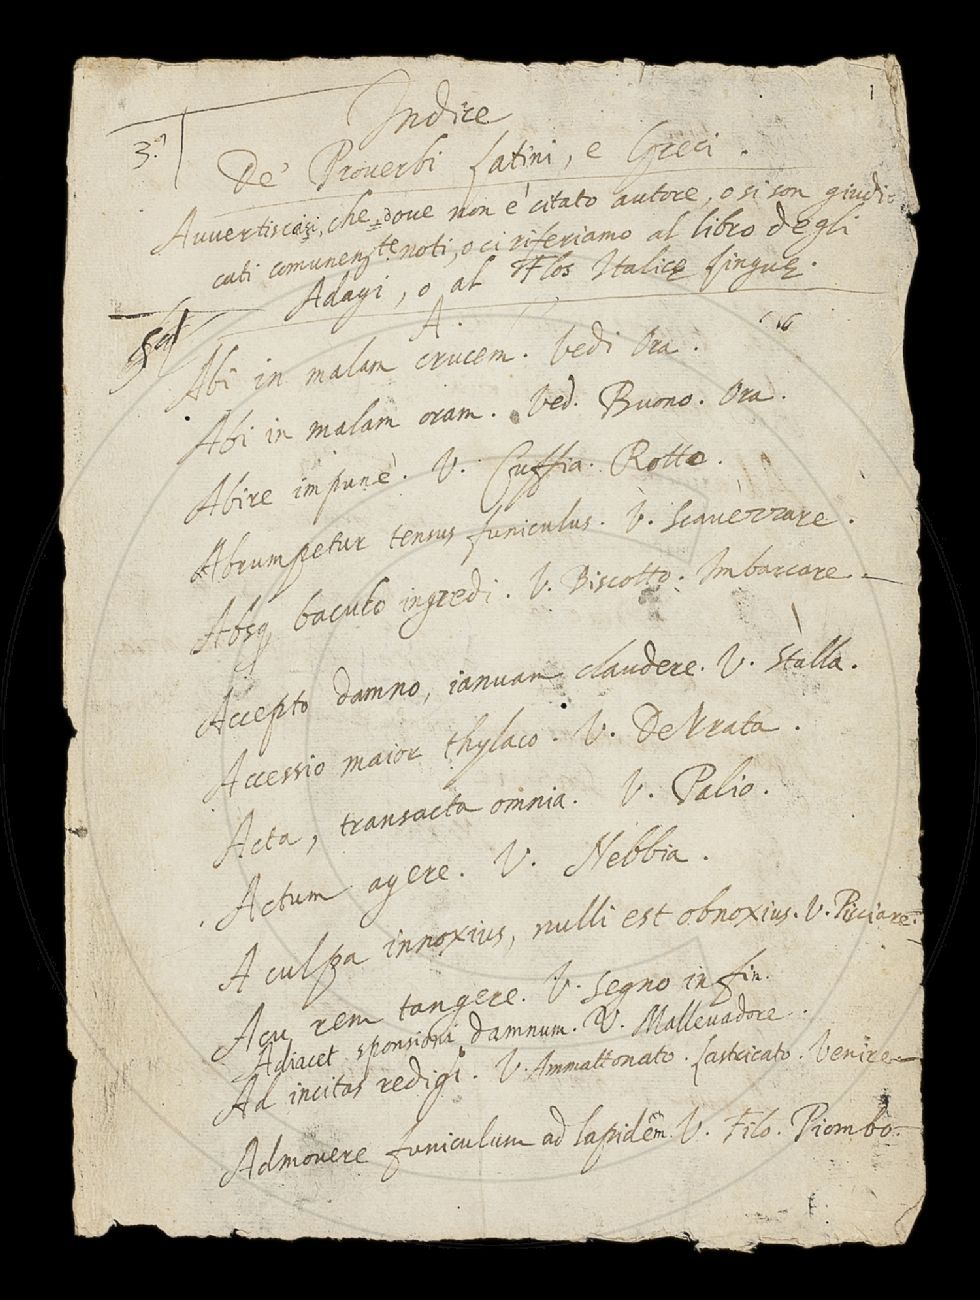 1
Indice
3.º
De' Proverbi Latini, e Greci.
Avvertiscasi, che dove non è citato autore, o si son giudi-
cati comunem.te noti, o ci riferiamo al libro degli
Adagi, o al Flos Italicę Linguę.
A.
Abi in malam crucem. Vedi Ora.
Abi in malam oram. Ved. Buono. Ora.
Abire impunè. V. Cuffia. Rotto.
Abrumpetur tensus funiculus. V. Scavezzare.
Absq baculo ingredi. V. Biscotto. Imbarcare
Accepto damno, ianuam claudere. V. Stalla.
Accessio maior thylaco. V. Derrata.
Acta, transacta omnia. V. Palio.
Actum agere. V. Nebbia.
A culpa innoxius, nulli est obnoxius. V. Pisciare.
Acu rem tangere. V. Segno in fin.
Adiacet sponsioni damnum. V. Mallevadore.
Ad incitas redigi. V. Ammattonato. Lastricato. Venire
Admovere funiculum ad lapidem. V. Filo. Piombo.